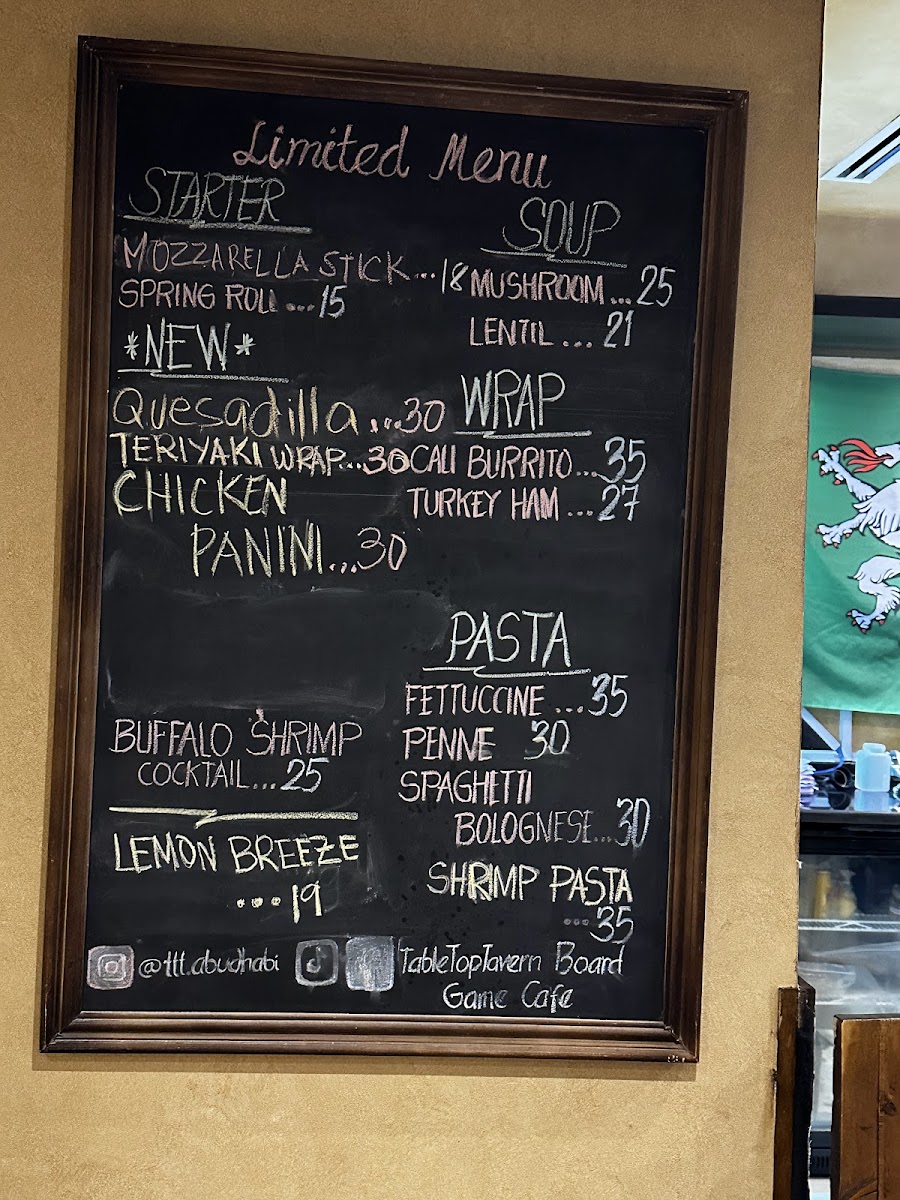 Limited Menu
STARTER
MOZZARELLA STICK...18
SPRING ROLL ...15
*NEW*
Quesadilla...30
TERIYAKI WRAP...30
CHICKEN
PANINI...30
BUFFALO SHRIMP
COCKTAIL...25
LEMON BREEZE
....19
SOUP
MUSHROOM...25
LENTIL...21
WRAP
CALI BURRITO...35
TURKEY HAM...27
PASTA
FETTUCCINE...35
PENNE 30
SPAGHETTI
BOLOGNESE...30
SHRIMP PASTA
...35
@ttt.abudhabi
TableTopTavern Board
Game Cafe